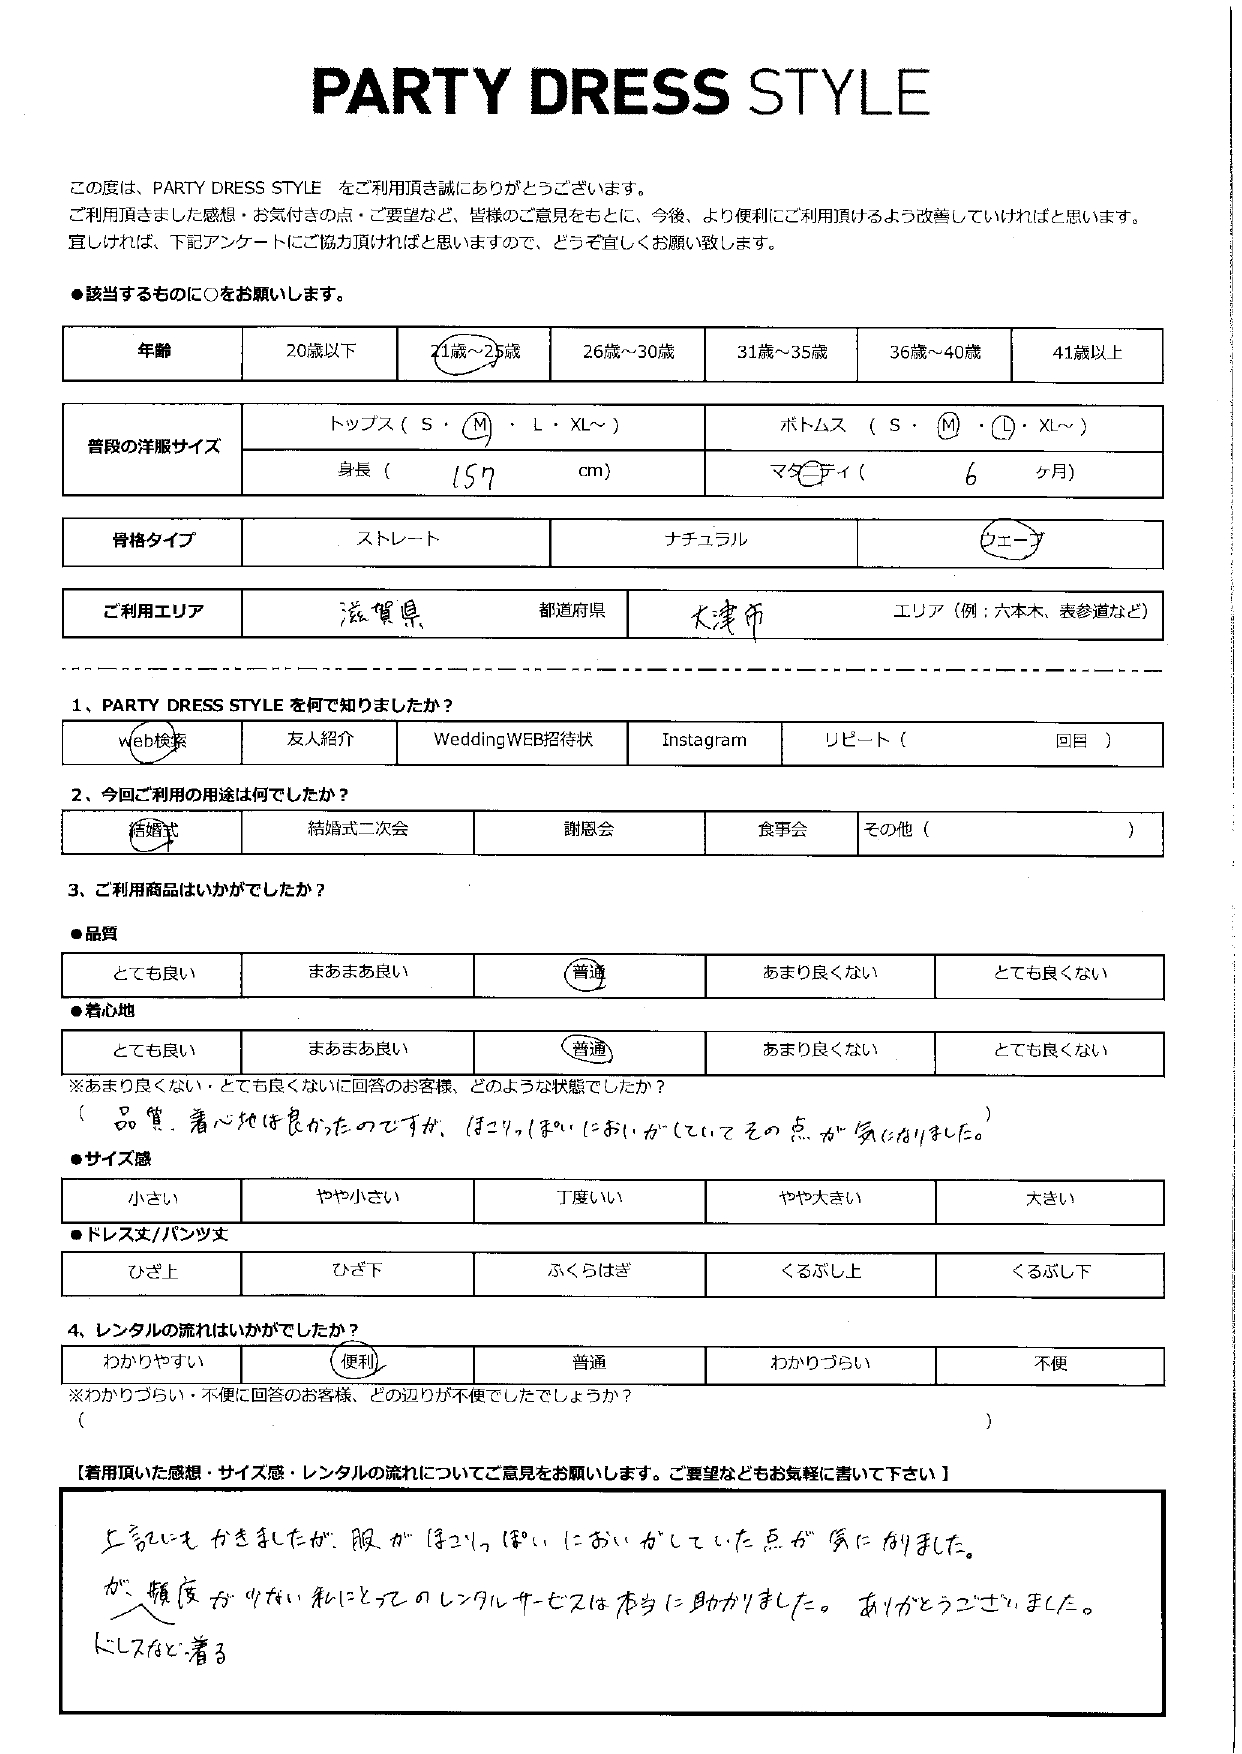 PARTY DRESS STYLE
この度は、PARTY DRESS STYLE をご利用頂き誠にありがとうございます。
ご利用頂きました感想・お気付きの点・ご要望など、皆様のご意見をもとに、今後、より便利にご利用頂けるよう改善していければと思います。
宜しければ、下記アンケートにご協力頂ければと思いますので、どうぞ宜しくお願い致します。
●該当するものに○をお願いします。
年齢 20歳以下 21歳～25歳 26歳～30歳 31歳～35歳 36歳～40歳 41歳以上
普段の洋服サイズ トップス ( S ・ M ・ L ・ XL～ ) ボトムス ( S ・ M ・ L ・ XL～ )
身長 ( 157 cm) マタニティ ( 6 ヶ月)
骨格タイプ ストレート ナチュラル ウェーブ
ご利用エリア 滋賀県 都道府県 大津市 エリア（例；六本木、表参道など）
1、PARTY DRESS STYLE を何で知りましたか？
web検索 友人紹介 WeddingWEB招待状 Instagram リピート ( 回目 )
2、今回ご利用の用途は何でしたか？
結婚式 結婚式二次会 謝恩会 食事会 その他 ( )
3、ご利用商品はいかがでしたか？
●品質
とても良い まあまあ良い 普通 あまり良くない とても良くない
●着心地
とても良い まあまあ良い 普通 あまり良くない とても良くない
※あまり良くない・とても良くないに回答のお客様、どのような状態でしたか？
( 品質、着心地は良かったのですが、ほこりっぽいにおいがしていてその点が気になりました。 )
●サイズ感
小さい やや小さい 丁度いい やや大きい 大きい
●ドレス丈/パンツ丈
ひざ上 ひざ下 ふくらはぎ くるぶし上 くるぶし下
4、レンタルの流れはいかがでしたか？
わかりやすい 便利 普通 わかりづらい 不便
※わかりづらい・不便に回答のお客様、どの辺りが不便でしたでしょうか？
( )
【着用頂いた感想・サイズ感・レンタルの流れについてご意見をお願いします。ご要望などもお気軽に書いて下さい 】
上記にもかきましたが、服がほこりっぽいにおいがしていた点が気になりました。
が、頻度が少ない私にとってのレンタルサービスは本当に助かりました。ありがとうございました。
ドレスなど着る